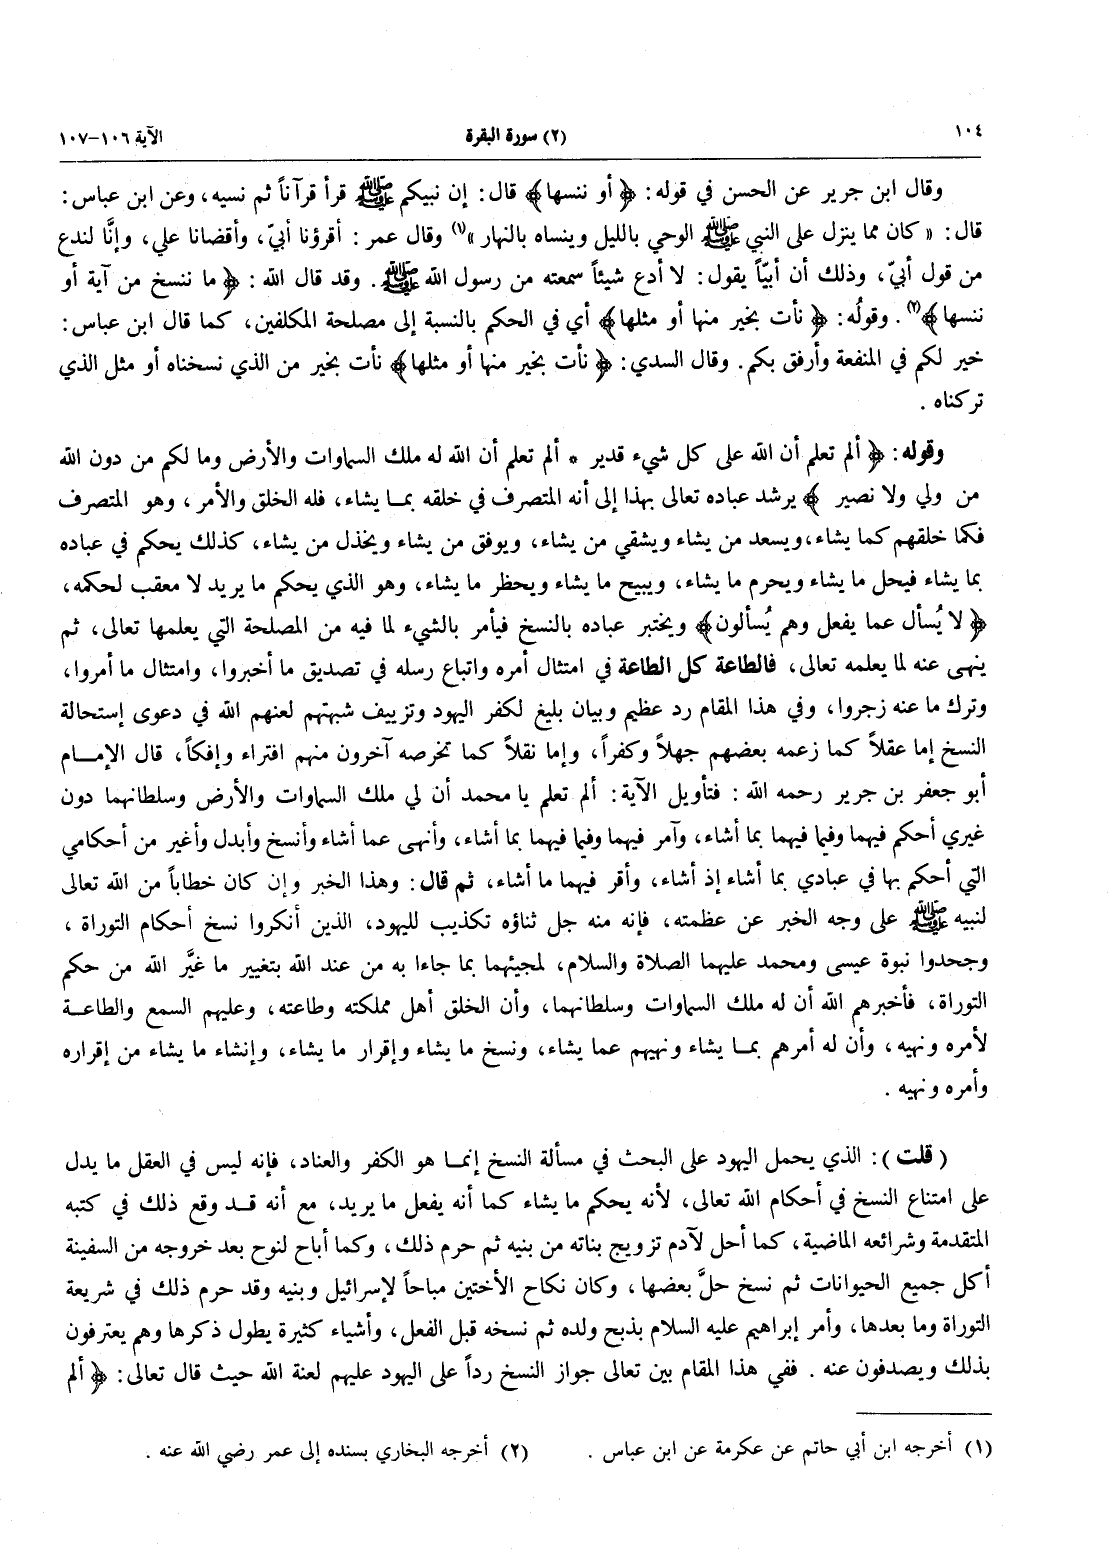 ١٠٤ (٢) سورة البقرة الآية ١٠٦-١٠٧
وقال ابن جرير عن الحسن في قوله: ﴿ أو ننسها﴾ قال: إن نبيكم ﷺ قرأ قرآناً ثم نسيه، وعن ابن عباس:
قال: « كان مما ينزل على النبي ﷺ الوحي بالليل وينساه بالنهار »(١) وقال عمر: أقرؤنا أبيّ، وأقضانا علي، وإنَّا لندع
من قول أبيّ، وذلك أن أبيّاً يقول: لا أدع شيئاً سمعته من رسول الله ﷺ. وقد قال الله: ﴿ ما ننسخ من آية أو
ننسها﴾(٢). وقولُه: ﴿ نأت بخير منها أو مثلها﴾ أي في الحكم بالنسبة إلى مصلحة المكلفين، كما قال ابن عباس:
خير لكم في المنفعة وأرفق بكم. وقال السدي: ﴿ نأت بخير منها أو مثلها﴾ نأت بخير من الذي نسخناه أو مثل الذي
تركناه .
وقوله: ﴿ ألم تعلم أن الله على كل شيء قدير * ألم تعلم أن الله له ملك السماوات والأرض وما لكم من دون الله
من ولي ولا نصير ﴾ يرشد عباده تعالى بهذا إلى أنه المتصرف في خلقه بمـا يشاء، فله الخلق والأمر، وهو المتصرف
فكما خلقهم كما يشاء، ويسعد من يشاء ويشقي من يشاء، ويوفق من يشاء ويخذل من يشاء، كذلك يحكم في عباده
بما يشاء فيحل ما يشاء ويحرم ما يشاء، ويبيح ما يشاء ويحظر ما يشاء، وهو الذي يحكم ما يريد لا معقب لحكمه،
﴿ لا يُسأل عما يفعل وهم يُسألون﴾ ويختبر عباده بالنسخ فيأمر بالشيء لما فيه من المصلحة التي يعلمها تعالى، ثم
ينهى عنه لما يعلمه تعالى، فالطاعة كل الطاعة في امتثال أمره واتباع رسله في تصديق ما أخبروا، وامتثال ما أمروا،
وترك ما عنه زجروا، وفي هذا المقام رد عظيم وبيان بليغ لكفر اليهود وتزييف شبهتهم لعنهم الله في دعوى إستحالة
النسخ إما عقلاً كما زعمه بعضهم جهلاً وكفراً، وإما نقلاً كما تخرصه آخرون منهم افتراء وإفكاً، قال الإمـــام
أبو جعفر بن جرير رحمه الله : فتأويل الآية: ألم تعلم يا محمد أن لي ملك السماوات والأرض وسلطانهما دون
غيري أحكم فيهما وفيما فيهما بما أشاء، وآمر فيهما وفيما فيهما بما أشاء، وأنهى عما أشاء وأنسخ وأبدل وأغير من أحكامي
التي أحكم بها في عبادي بما أشاء إذ أشاء، وأقر فيهما ما أشاء، ثم قال: وهذا الخبر وإن كان خطاباً من الله تعالى
لنبيه ﷺ على وجه الخبر عن عظمته، فإنه منه جل ثناؤه تكذيب لليهود، الذين أنكروا نسخ أحكام التوراة ،
وجحدوا نبوة عيسى ومحمد عليهما الصلاة والسلام، لمجيئهما بما جاءا به من عند الله بتغيير ما غيَّر الله من حكم
التوراة، فأخبرهم الله أن له ملك السماوات وسلطانهما، وأن الخلق أهل مملكته وطاعته، وعليهم السمع والطاعـة
لأمره ونهيه، وأن له أمرهم بمـا يشاء ونهيهم عما يشاء، ونسخ ما يشاء وإقرار ما يشاء، وإنشاء ما يشاء من إقراره
وأمره ونهيه .
(قلت): الذي يحمل اليهود على البحث في مسألة النسخ إنمـا هو الكفر والعناد، فإنه ليس في العقل ما يدل
على امتناع النسخ في أحكام الله تعالى، لأنه يحكم ما يشاء كما أنه يفعل ما يريد، مع أنه قـد وقع ذلك في كتبه
المتقدمة وشرائعه الماضية، كما أحل لآدم تزويج بناته من بنيه ثم حرم ذلك، وكما أباح لنوح بعد خروجه من السفينة
أكل جميع الحيوانات ثم نسخ حلَّ بعضها، وكان نكاح الأختين مباحاً لإسرائيل وبنيه وقد حرم ذلك في شريعة
التوراة وما بعدها، وأمر إبراهيم عليه السلام بذبح ولده ثم نسخه قبل الفعل، وأشياء كثيرة يطول ذكرها وهم يعترفون
بذلك ويصدفون عنه . ففي هذا المقام بين تعالى جواز النسخ رداً على اليهود عليهم لعنة الله حيث قال تعالى: ﴿ ألم
(١) أخرجه ابن أبي حاتم عن عكرمة عن ابن عباس . (٢) أخرجه البخاري بسنده إلى عمر رضي الله عنه .